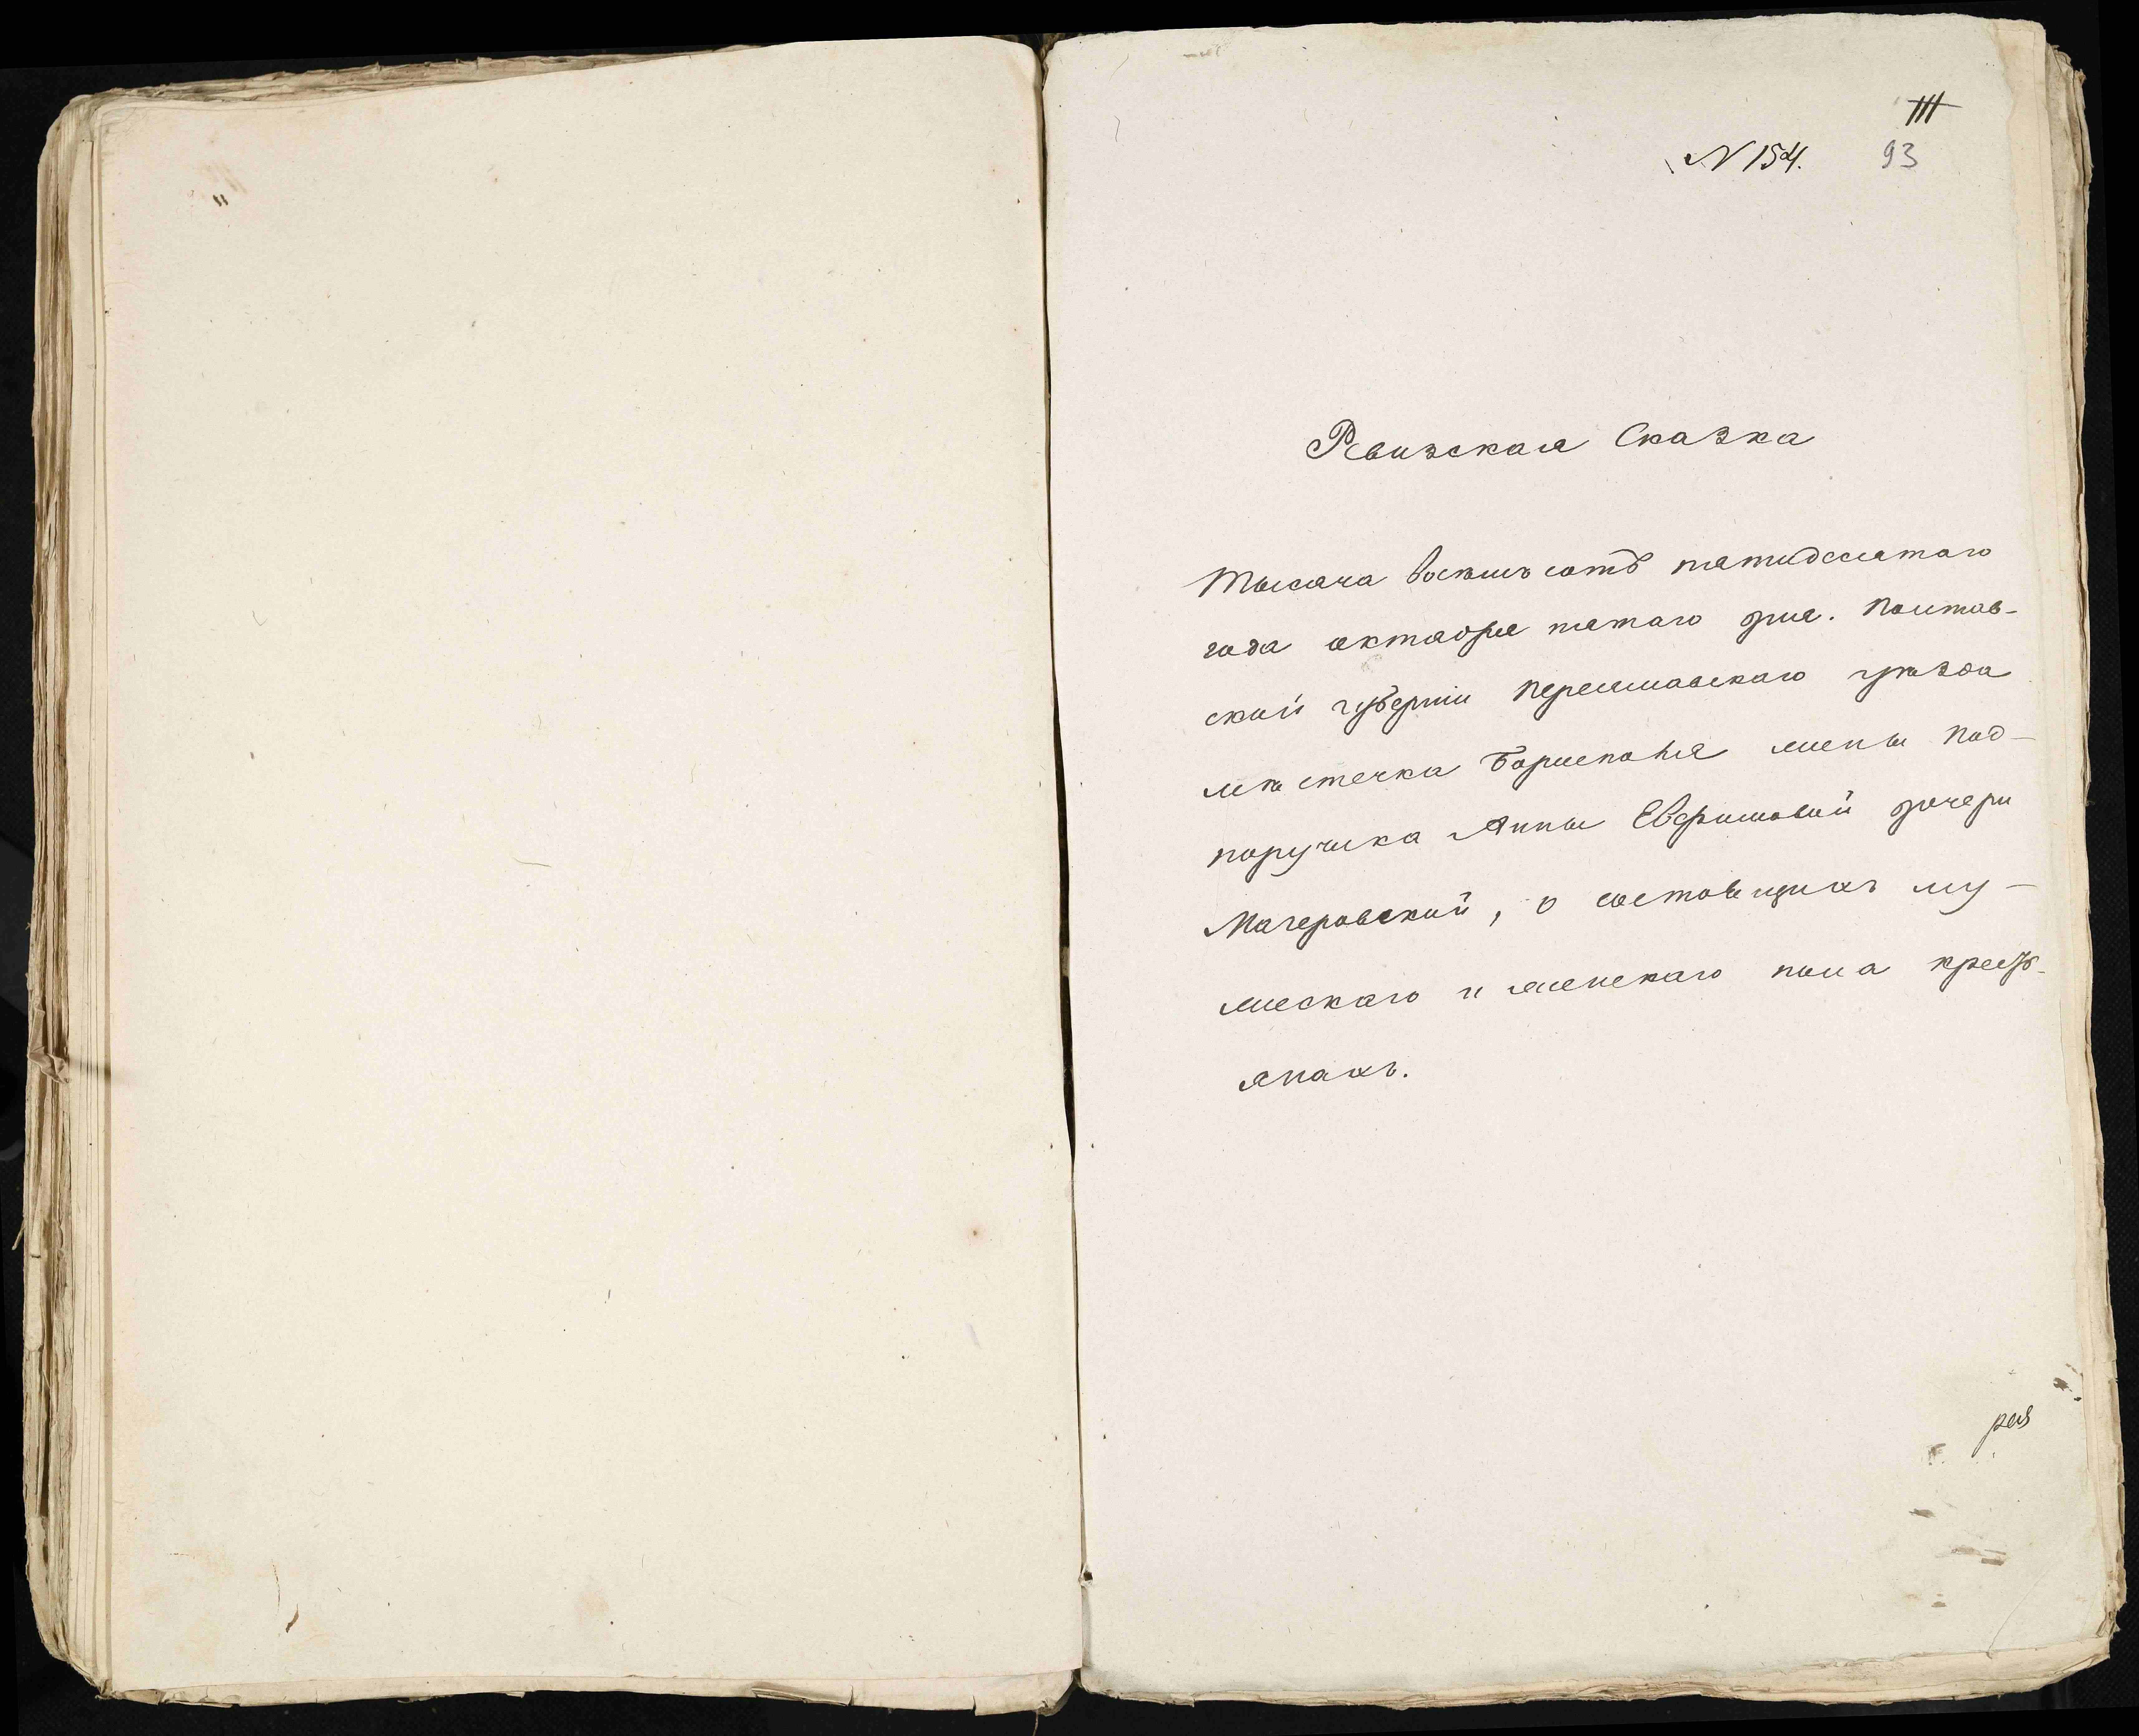 N 154. 93
Ревизская Сказка
Тысяча восемь сотъ пятидесятаго
года октября пятаго дня. Полтав-
ской губерніи Переяславскаго уѣзда
мѣстечка Борисполя жены под-
поручика Анны Ефимовой дочери
Мачеровской, о состоящихъ му-
жескаго и женскаго пола кресть-
янахъ.